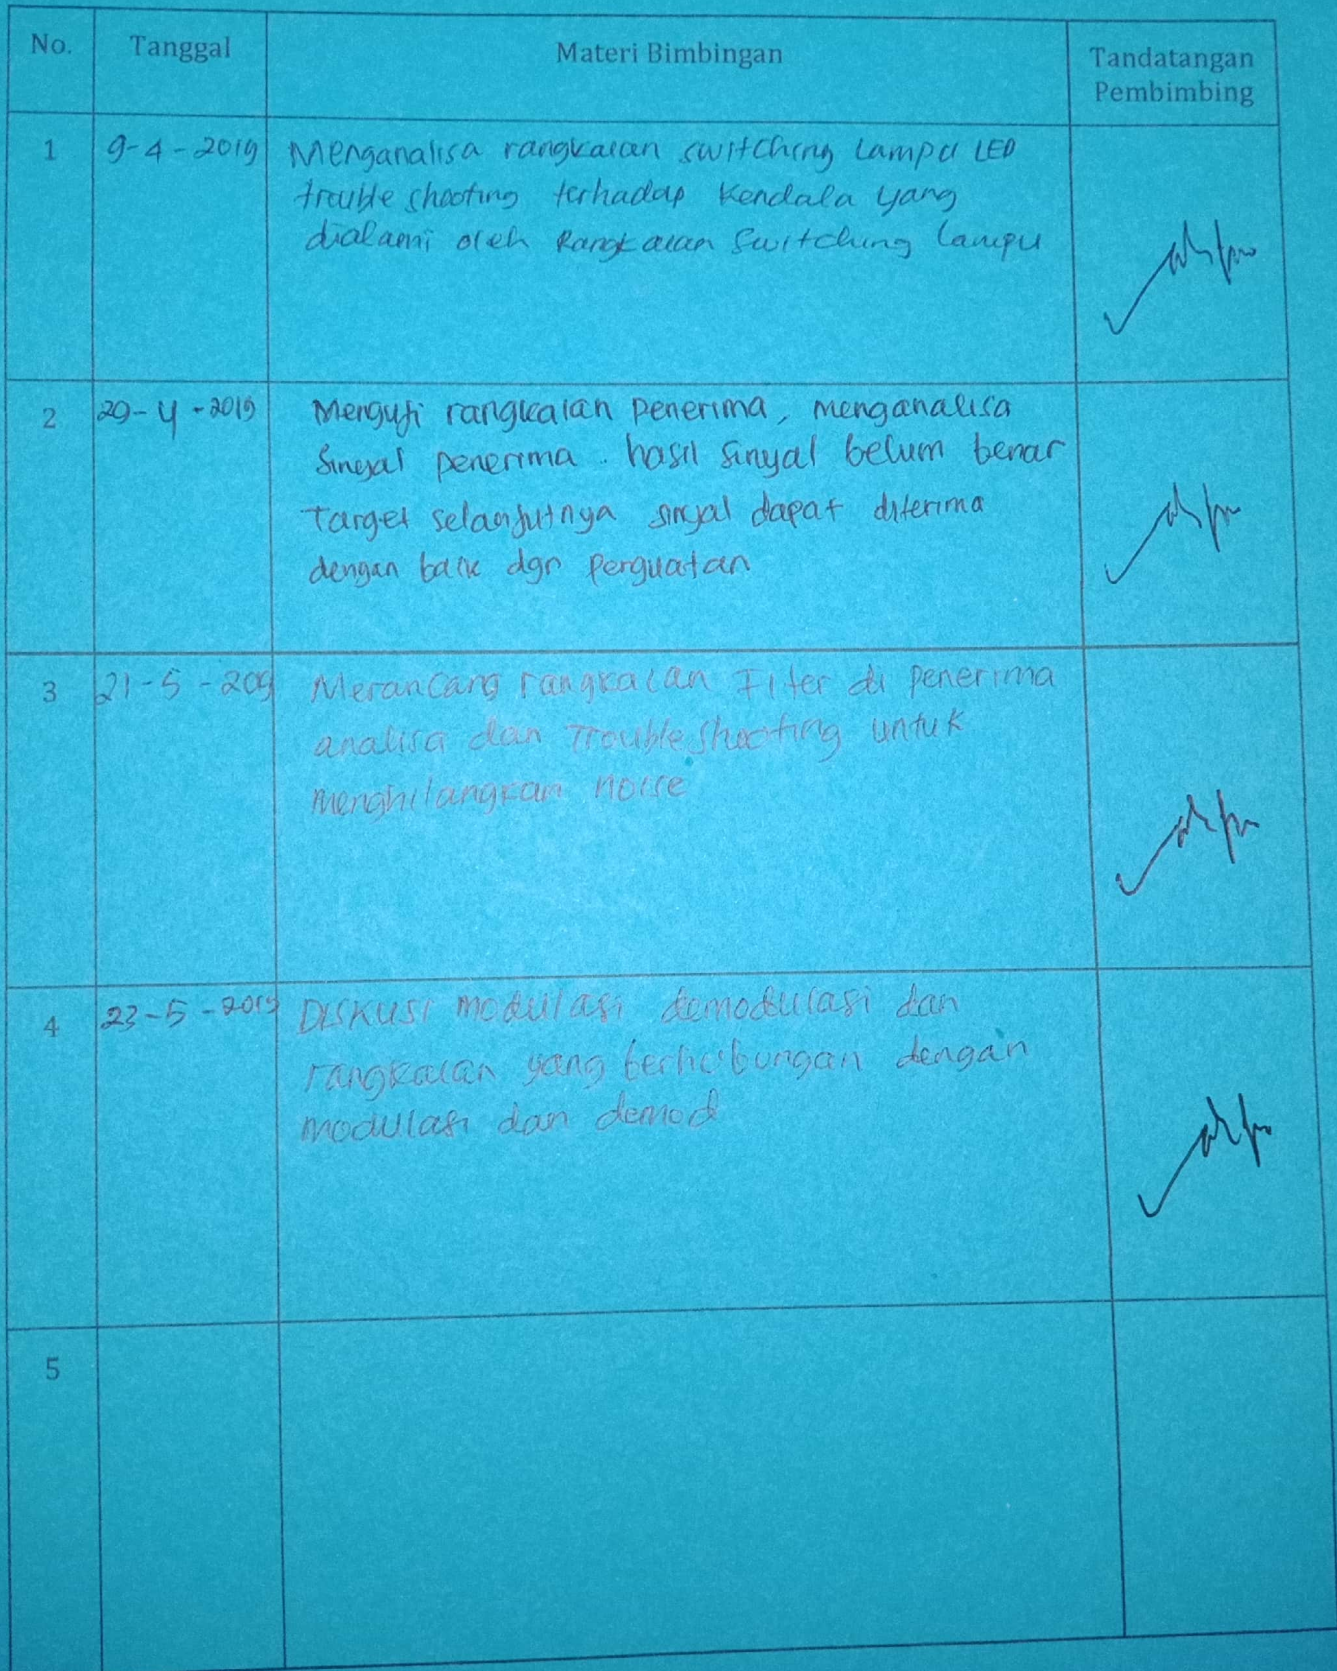 No. Tanggal Materi Bimbingan Tandatangan
Pembimbing
1 9-4-2019 Menganalisa rangkaian switching Lampu LED
trouble shooting terhadap Kendala yang
dialami oleh Rangkaian Switching lampu
2 29-4-2019 Menguji rangkaian penerima, menganalisa
Sinyal penerima. hasil sinyal belum benar
Target selanjutnya sinyal dapat diterima
dengan baik dgn penguatan
3 21-5-2019 Merancang rangkaian Filter di penerima
analisa dan Trouble Shooting untuk
menghilangkan noise
4 23-5-2019 Diskusi modulasi demodulasi dan
rangkaian yang berhubungan dengan
modulasi dan demod
5